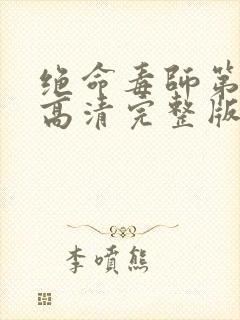 绝命毒师第
高清完整版
李喷熊